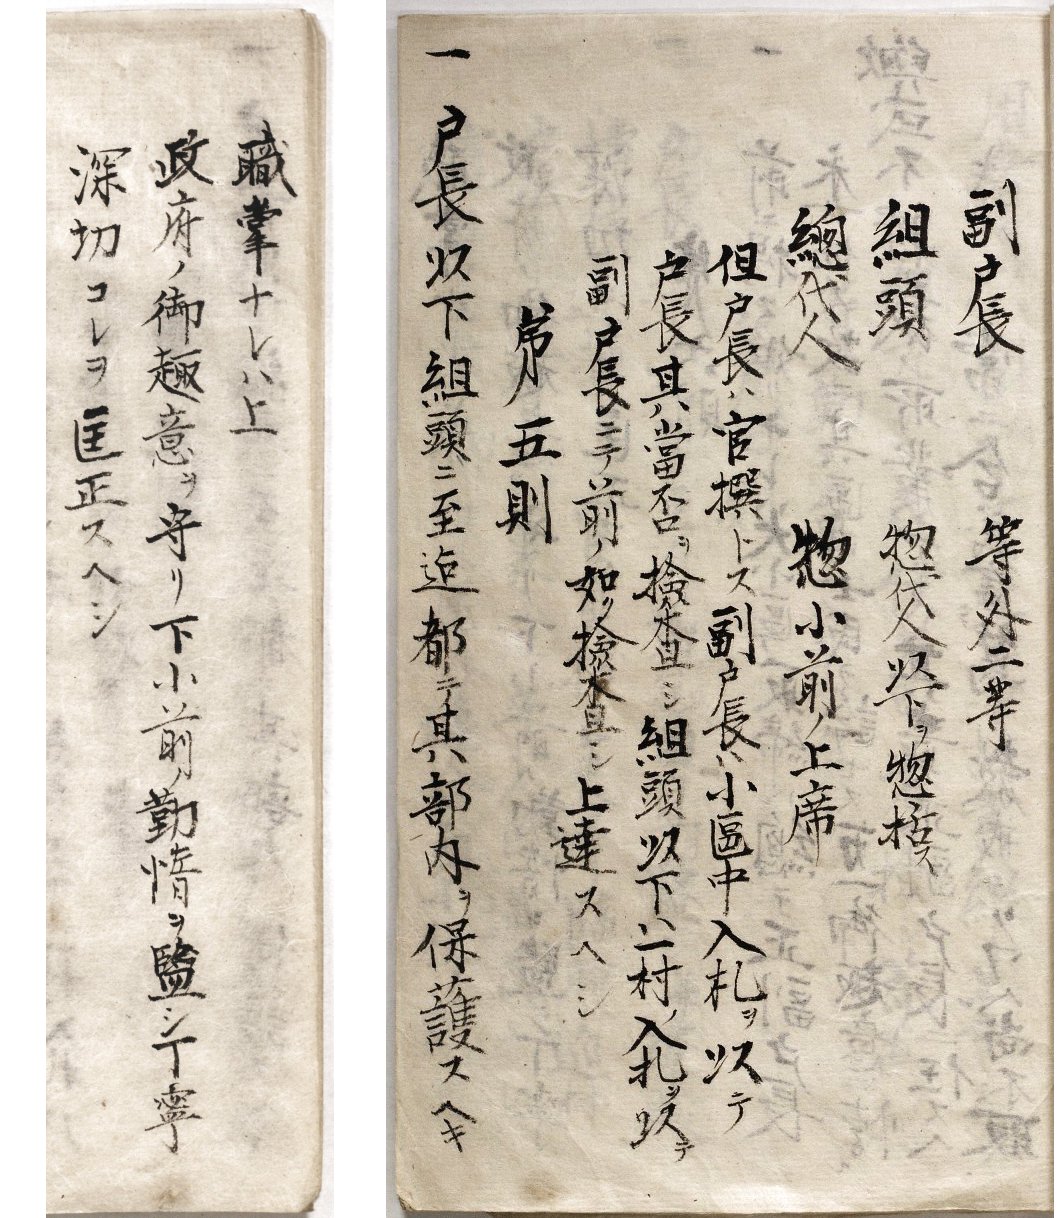 副戸長　等外二等
組頭　惣代人以下ヲ惣括ス
總代人　惣小前ノ上席
但戸長ハ官撰トス副戸長ハ小區中入札ヲ以テ
戸長其當否ヲ撿査シ組頭以下ハ一村ノ入札ヲ以テ
副戸長ニテ前ノ如ク撿査シ上達スヘシ
第五則
一　戸長以下組頭ニ至迄都テ其部内ヲ保護スヘキ
職掌ナレハ上
政府ノ御趣意ヲ守リ下小前ノ勤惰ヲ監シ丁寧
深切コレヲ匡正スヘシ